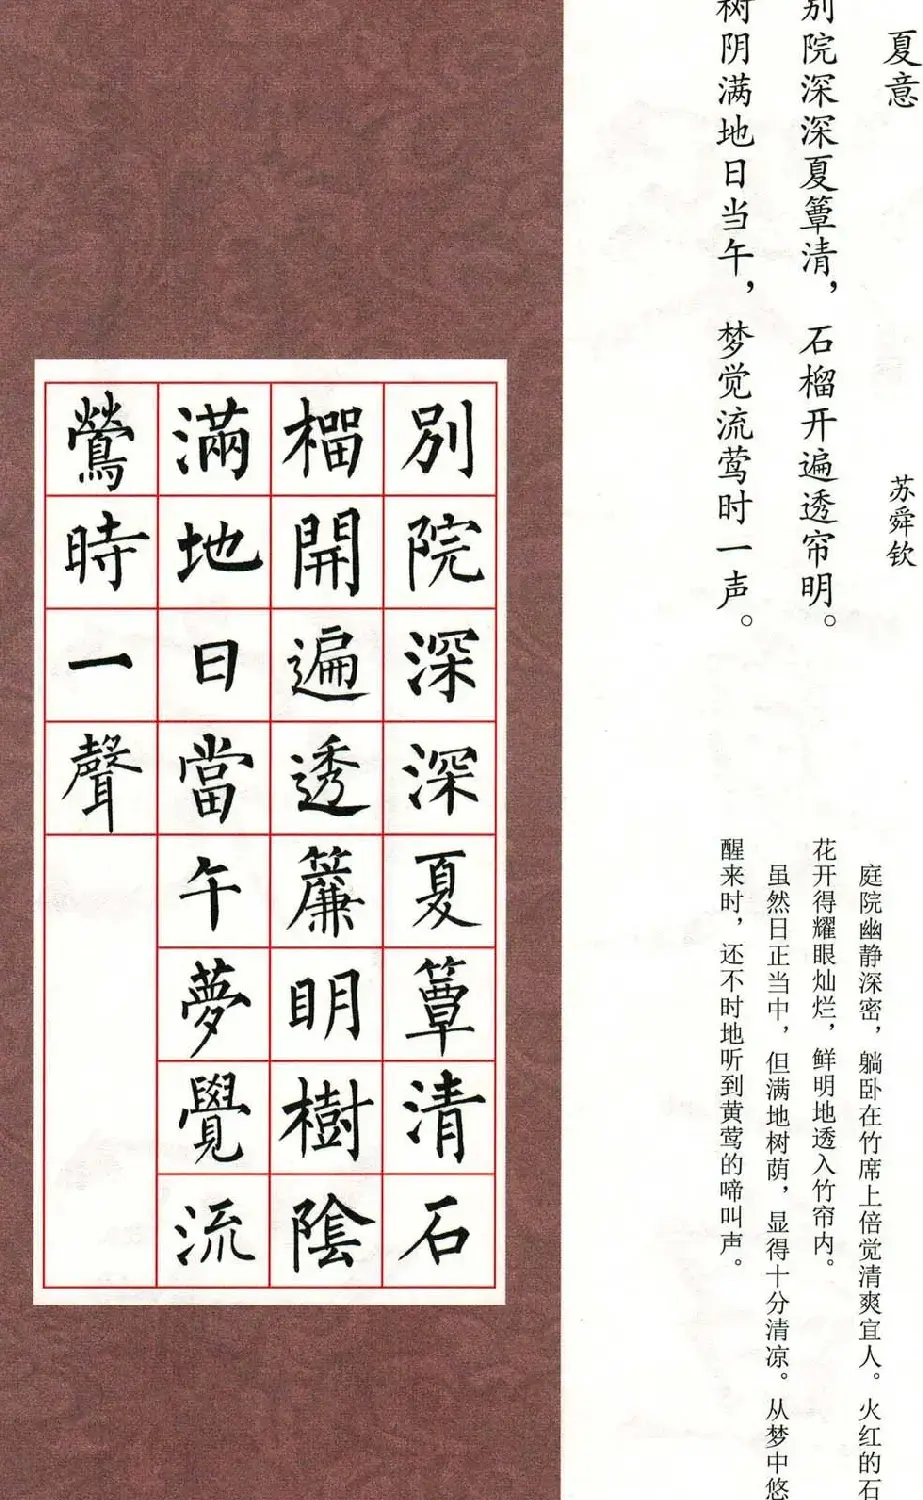 夏意
苏舜钦
别院深深夏簟清，石榴开遍透帘明。
树阴满地日当午，梦觉流莺时一声。
庭院幽静深密，躺卧在竹席上倍觉清爽宜人。火红的石
花开得耀眼灿烂，鲜明地透入竹帘内。
虽然日正当中，但满地树荫，显得十分清凉。从梦中悠
醒来时，还不时地听到黄莺的啼叫声。
別院深深夏簟清石
榴開遍透簾明樹陰
滿地日當午夢覺流
鶯時一聲